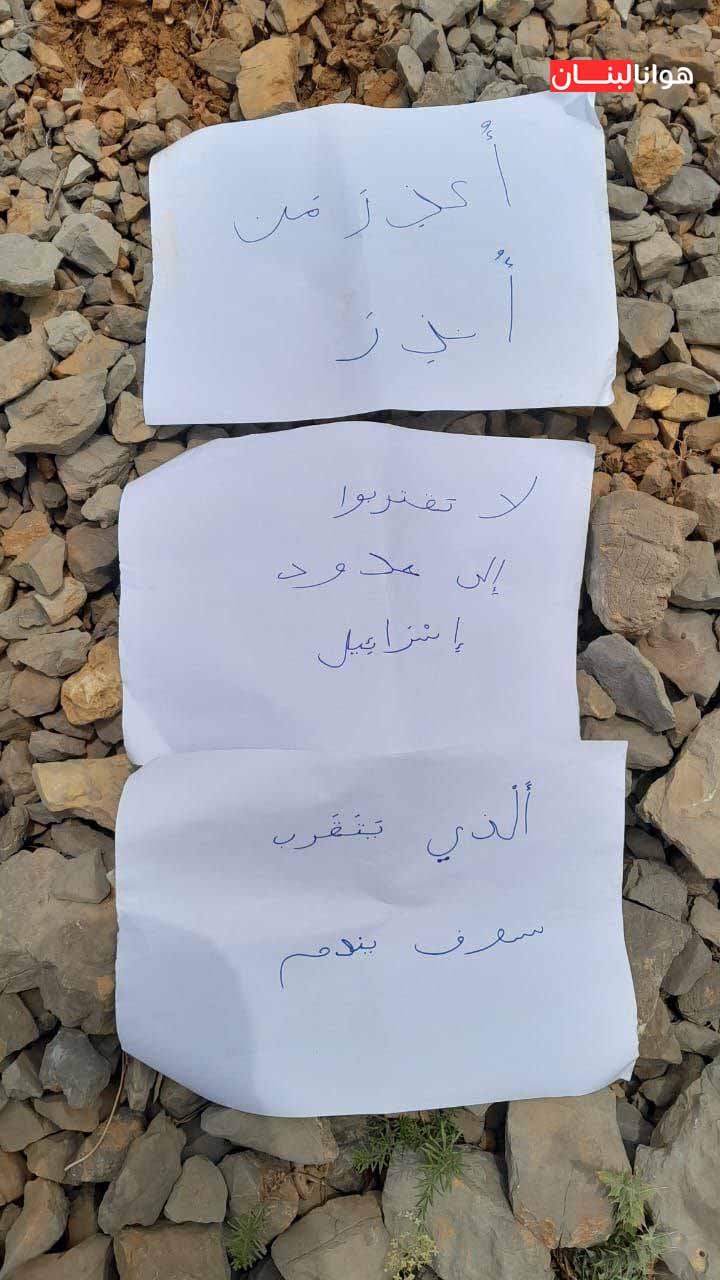 هوانالبنان
أُعذِرَ مَن
أُنذِرَ
لا تقتربوا
إلى حدود
إسْرَائِيل
أَلْذي يَتَقَرب
سوف يندم